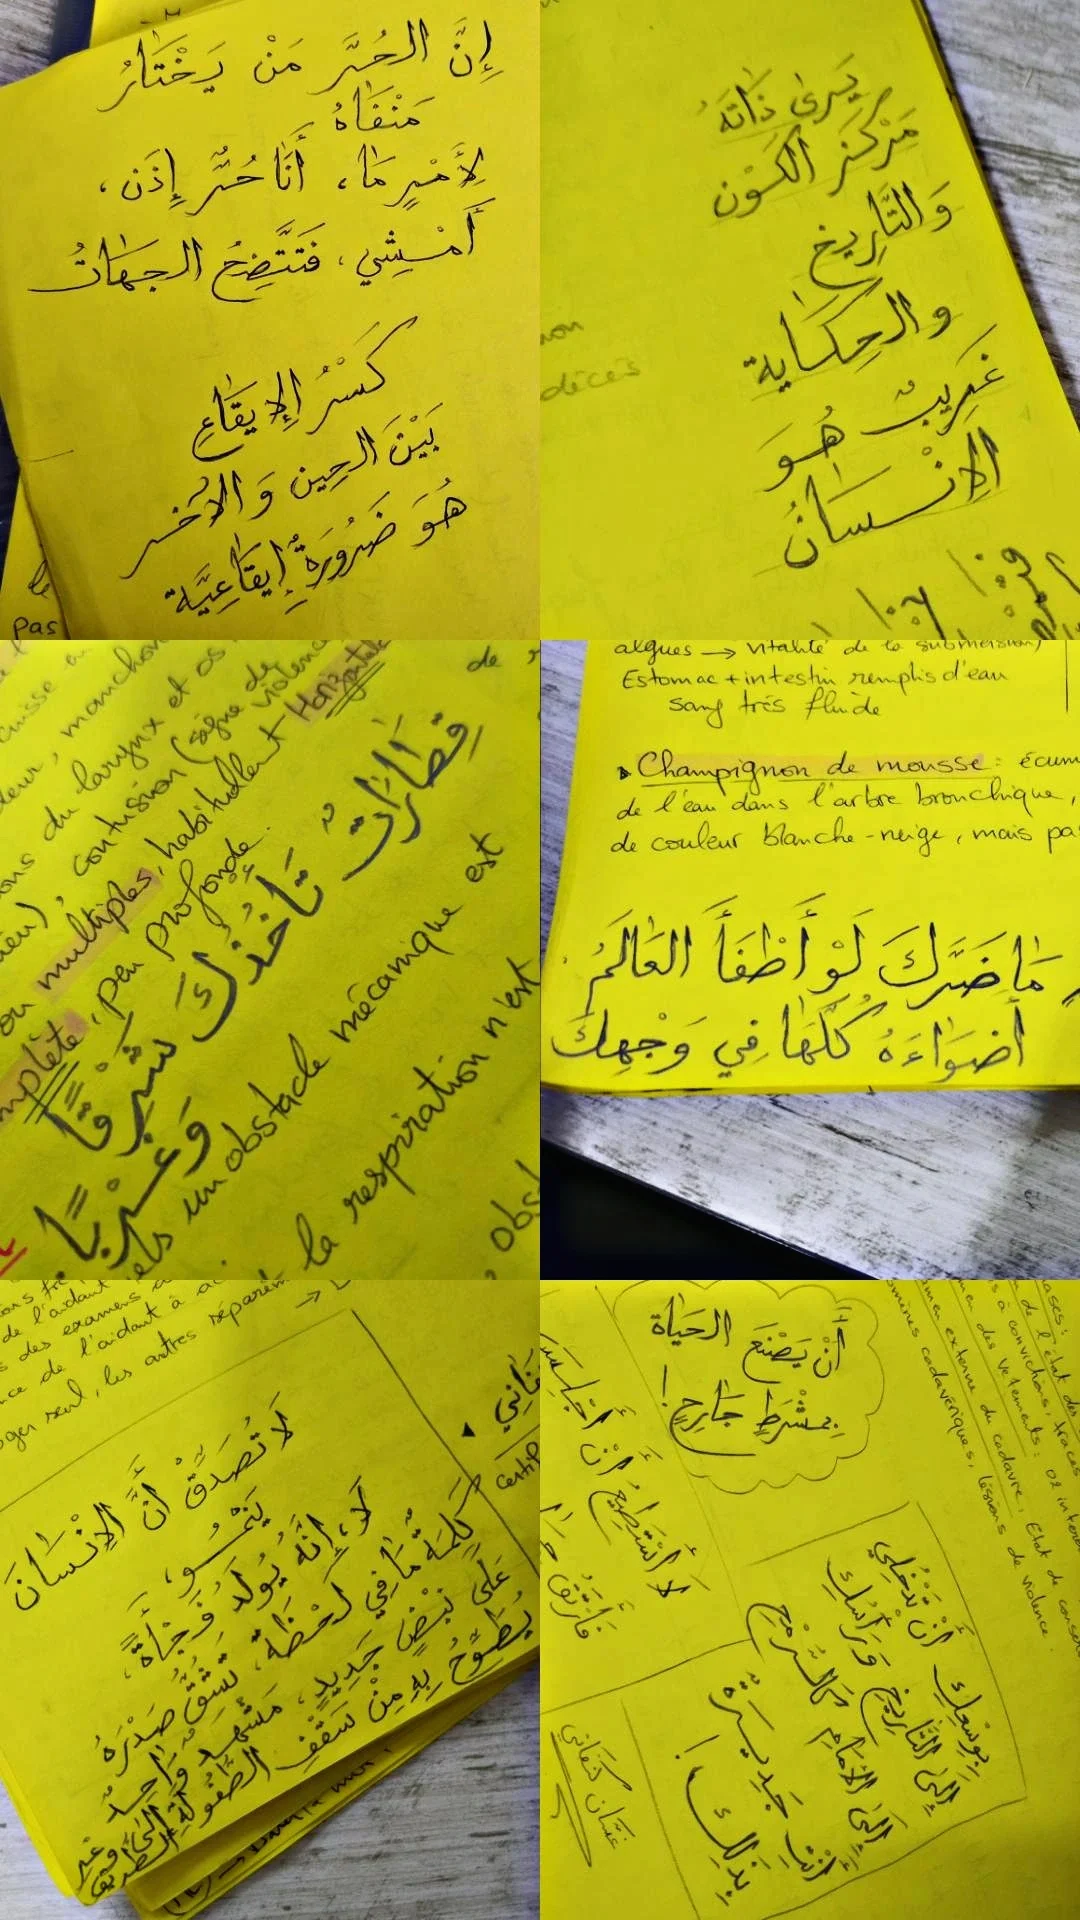 إِنَّ الحُرَّ مَنْ يَخْتَارُ
مَنْفَاهُ
لِأَمْرٍ مَا، أَنَا حُرٌّ إِذَن،
أَمْشِي، فَتَتَّضِحُ الجِهَاتُ
كَسْرُ الإِيقَاعِ
بَيْنَ الحِينِ وَ الأُخر
هُوَ ضَرُورَةٌ إِيقَاعِيَّة
pas
يَرى ذَاتَهُ
مَرْكَزَ الكَوْن
وَ التَّارِيخ
و الحِكَاية
غَرِيبٌ هُوَ
الإِنْسَانُ
décès
de
du larynx et os
contusion (signe de violence
ou multiples, habituellent Horizontale
, peu profonde.
قِطَارَاتٌ تَأخُذُكَ شَرْقًا
وَ غَرْبًا
un obstacle mécanique est
la respiration n'est
algues → vitalité de la submersion)
Estomac + intestin remplis d'eau
sang très fluide
Champignon de mousse : écum
de l'eau dans l'arbre bronchique,
de couleur blanche-neige, mais pa
مَا ضَرَّكَ لَوْ أَطْفَأَ العَالَمُ
أَضوَاءَهُ كُلَّهَا فِي وَجْهِكَ
de l'aidant
des examens
de l'aidant à
seul, les autres
لَا تُصَدِّقْ أَنَّ الإِنْسَانَ
يَنْمُو،
لَا، إِنَّهُ يُولَدُ فَجْأَةً،
كَلِمَةٌ مَا فِي لَحْظَة، تشقُّ صَدْرَهُ
عَلَى نَبْضٍ جَدِيدٍ، مَشْهد وَاحِدٌ
يُطَوِّحُ بِهِ مِنْ سَقْفِ الطُّفُولَةِ إِلَى
الطَّرِيق
certif
أَنْ يَصْنَعَ الحَيَاة
بِمشْرَطٍ جَارِحٍ!
لَا أَسْتَطِيعُ أَنْ
de l'état des
à convictions, traces
men des vetements : 02 inter
examen externe du cadavre, Etat de conse
cadavériques, lésions de violence.
بِوُسْعِكِ أَنْ تَدْخُلِي
إِلَى التَّارِيخِ وَرَأسُكِ
إِلَى الأَمَام كَالرُّمْحِ
أَنْتِ جَدِيرَةٌ
بِذَلِكَ!
غسَّان كنفاني